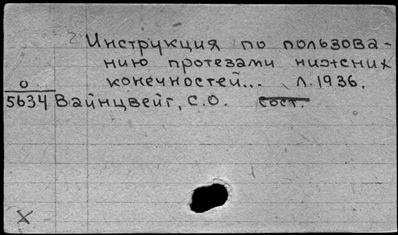 Инструкция по пользова-
нию протезами нижних
конечностей... Л. 1936.
О
5634 Вайнцвейг, С.О. сост.
X